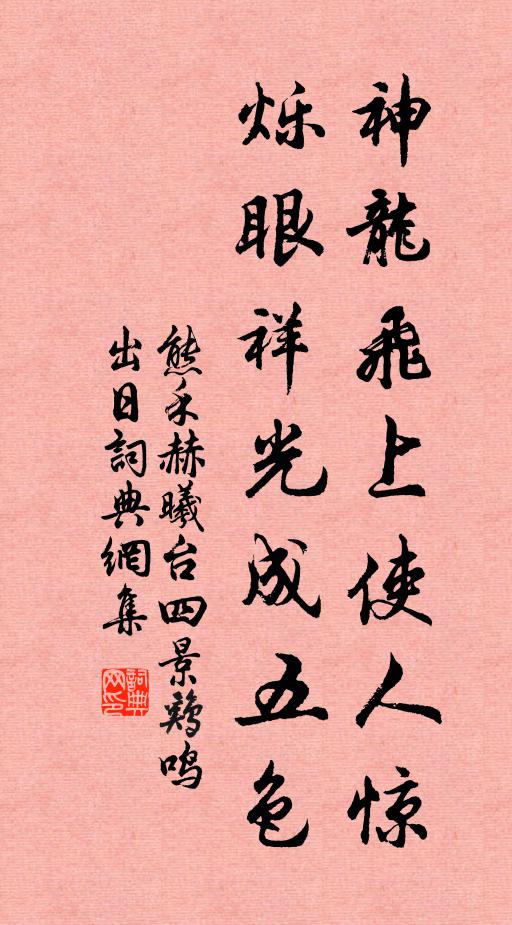 神龍飛上使人惊
烁眼祥光成五色
熊禾赫曦台四景鸡鸣
出日詞典網集
詞典网印